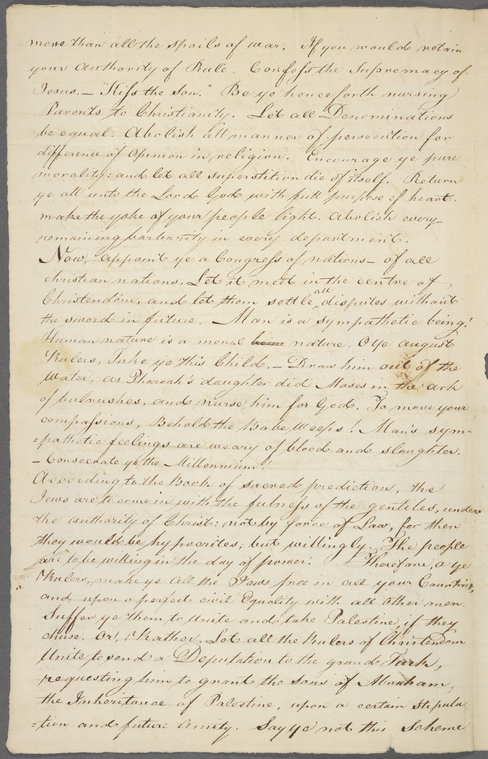 more than all the spoils of war. If you would retain
your Authority of Rule. Confess the Supremacy of
Jesus.— "Kiss the Son." Be ye henceforth nursing
Parents to Christianity. Let all Denominations
be equal. Abolish all manner of persecution for
difference of Opinion in religion. Encourage ye pure
morality: and let all superstition die of itself. Return
ye all unto the Lord God with full purpose of heart.
make the yoke of your people light. Abolish every
remaining barbarity in every department.
Now, appoint ye a Congress of nations— of all
christian nations. Let it meet in the centre of
Christendom, and let them settle all disputes without
the sword in future. Man is a sympathetic being!
Human nature is a moral nature. O ye august
Rulers, Take ye this Child.— Draw him out of the
water, as Pharoah's daughter did Moses in the ark
of bulrushes, and nurse him for God. To move your
compassions, Behold the Babe Weeps! Man's sym-
=pathetic feelings are weary of blood and slaughter.
— Consecrate ye the Millennium!
According to the Book of sacred prediction, the
Jews are to come in with the fulness of the gentiles, under
the authority of Christ: not by force of Law, for then
they would be hypocrites; but willingly. The people
are to be willing in the day of power. Therefore, O ye
Rulers, make ye all the Jews free in all your Countries,
and upon a perfect civil Equality with all other men.
Suffer ye them to Unite and take Palestine, if they
chuse. Or, Rather, Let all the Rulers of Christendom
Unite to send a Deputation to the grand Turk,
requesting him to grant the sons of Abraham,
the Inheritance of Palestine, upon a certain Stipula
=tion and future Amity. Say ye not this Scheme